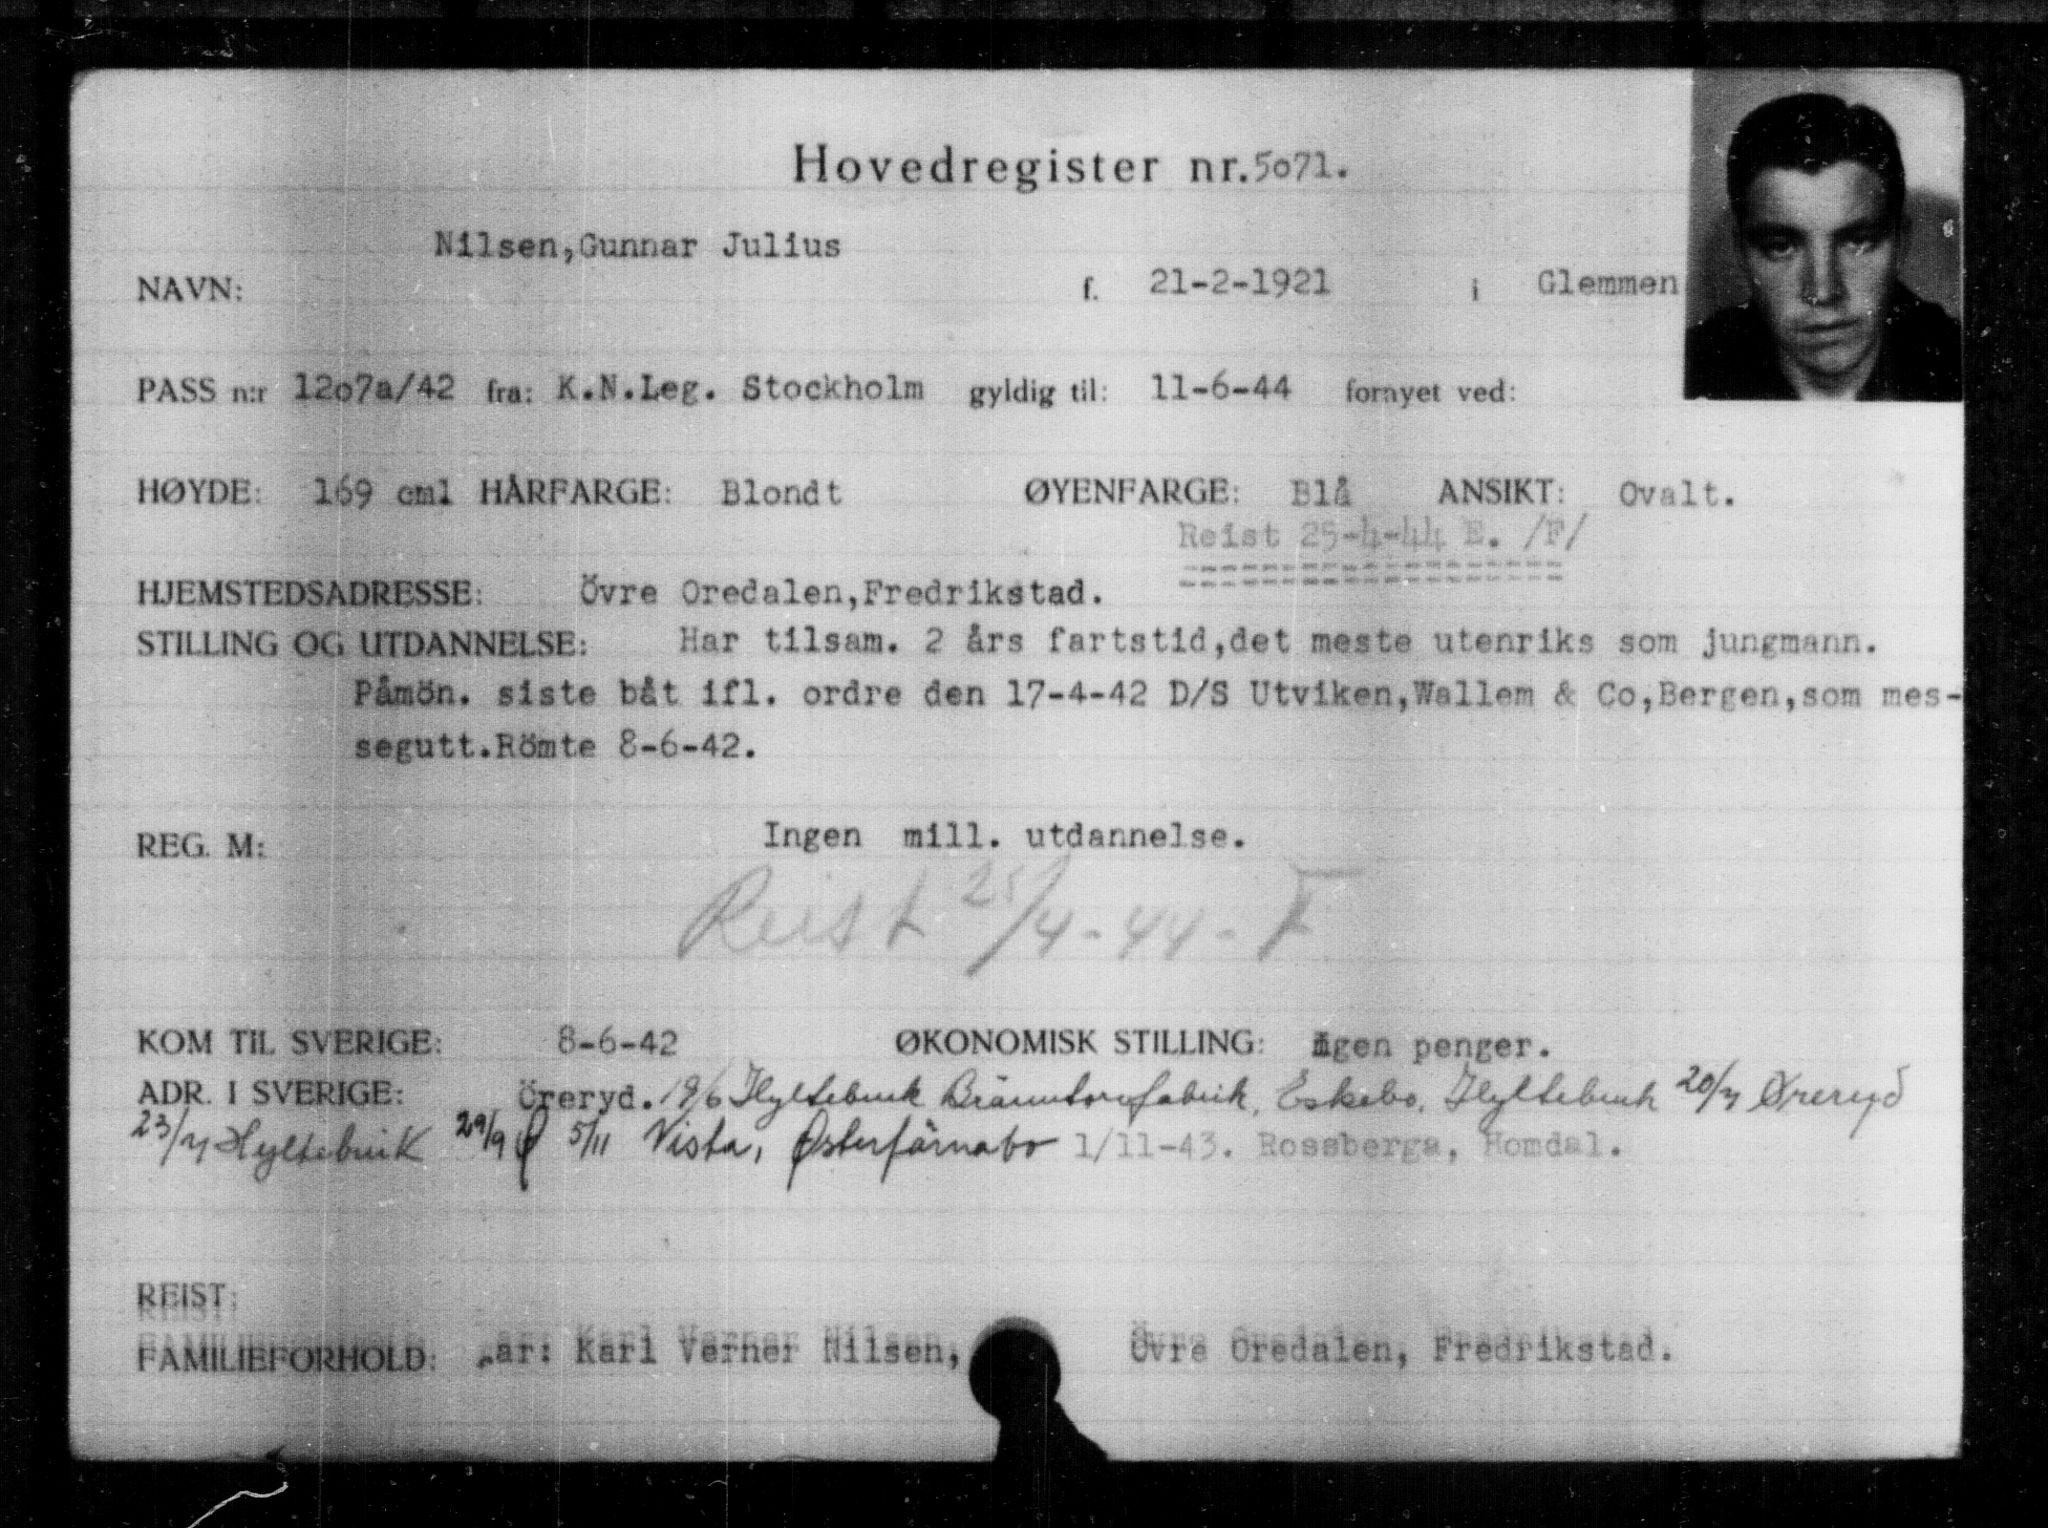 Hovedregister nr. 5o71.
Nilsen,Gunnar Julius
NAVN: f. 21-2-1921 i Glemmen
PASS n:r 12o7a/42 fra: K.N.Leg. Stockholm gyldig til: 11-6-44 fornyet ved:
HØYDE: 169 cml HÅRFARGE: Blondt ØYENFARGE: Blå ANSIKT: Ovalt.
Reist 25-4-44 E. /F/
HJEMSTEDSADRESSE: Övre Oredalen,Fredrikstad.
STILLING OG UTDANNELSE: Har tilsam. 2 års fartstid,det meste utenriks som jungmann.
Påmön. siste båt ifl. ordre den 17-4-42 D/S Utviken,Wallem & Co,Bergen,som mes-
segutt.Römte 8-6-42.
REG. M: Ingen mill. utdannelse.
Reist 25/4-44- F
KOM TIL SVERIGE: 8-6-42 ØKONOMISK STILLING: Ingen penger.
ADR. I SVERIGE: Öreryd. 19/6 Hyltebruk Bränntorvfabrik, Eskebo, Hyltebruk 20/7 Øreryd
23/7 Hyltebruk 29/9 Ø 5/11 Vista, Østerfärnabo 1/11-43. Rossberga, Homdal.
REIST:
FAMILIEFORHOLD: ar: Karl Verner Nilsen, Övre Oredalen, Fredrikstad.